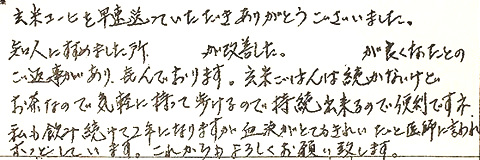 玄米コーヒを早速送っていただきありがとうございました。
知人にすすめました所 が改善した。 が良くなったとの
ご返事があり喜んでおります。玄米ごはんは続かないけど
お茶なので気軽に持って歩けるので持続出来るので便利ですネ
私も飲み続けて2年になりますが血液がとてもきれいだと医師に言われ
ホッとしています。これからもよろしくお願い致します。